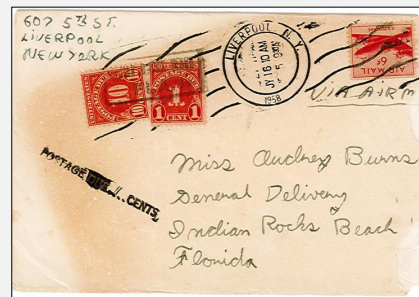 607 5TH ST.
LIVERPOOL
NEW YORK
LIVERPOOL, N.Y.
10 AM
1958
10
1 CENT
AIR MAIL
6¢
VIA AIR M
POSTAGE DUE 11 CENTS
Miss Audrey Burns
General Delivery
Indian Rocks Beach
Florida